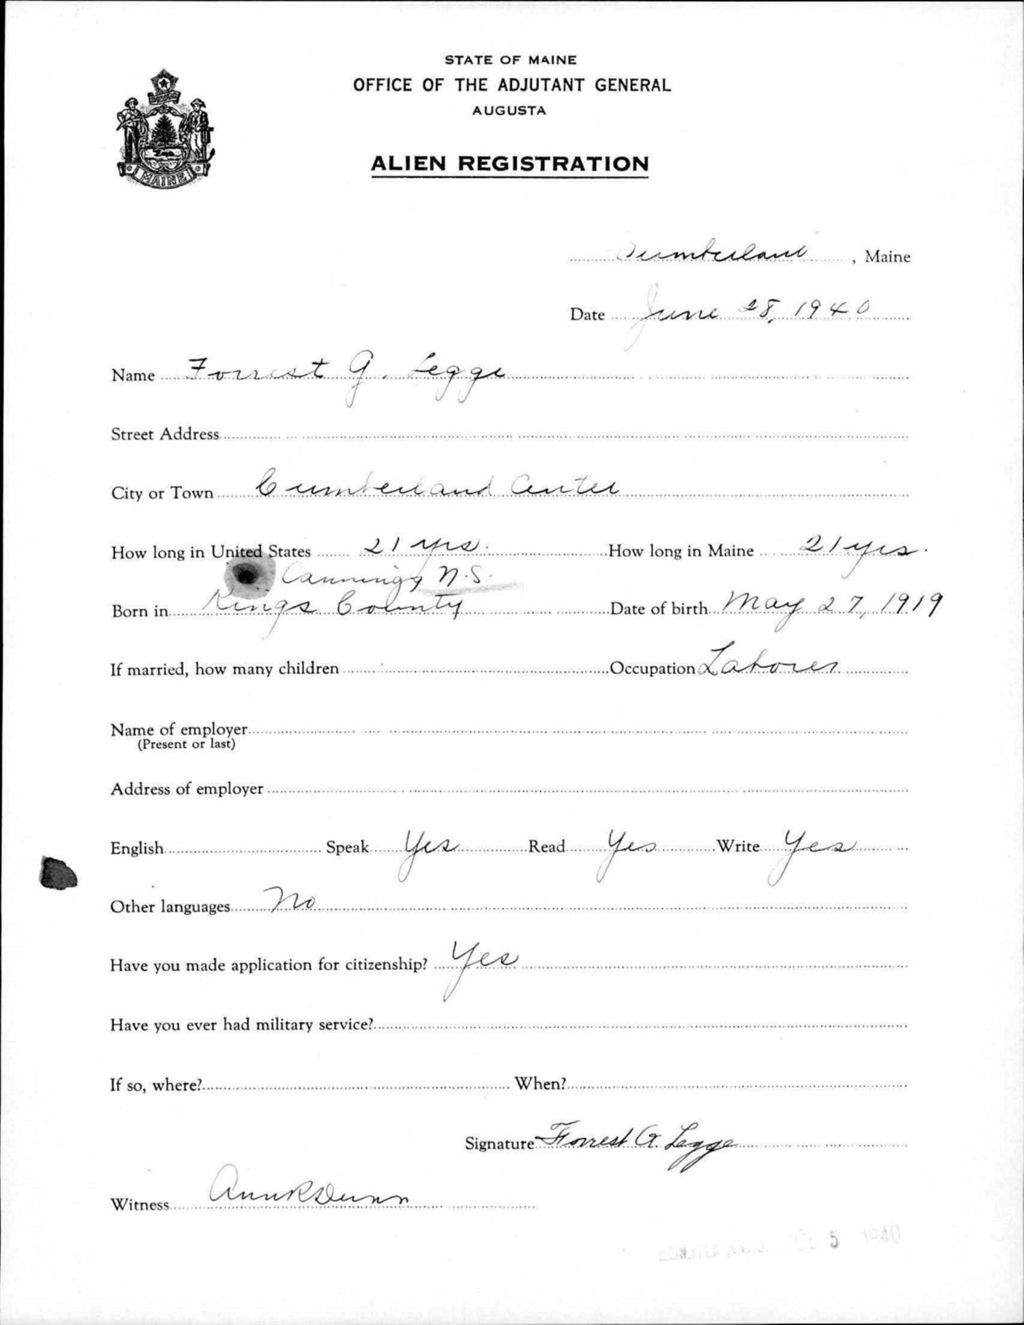 STATE OF MAINE
OFFICE OF THE ADJUTANT GENERAL
AUGUSTA
ALIEN REGISTRATION
MAINE
Cumberland, Maine
Date June 28, 1940
Name Forrest G. Legge
Street Address
City or Town Cumberland Center
How long in United States 21 yrs. How long in Maine 21 yrs.
Canning N.S.
Born in Kings County Date of birth May 27, 1919
If married, how many children Occupation Laborer
Name of employer
(Present or last)
Address of employer
English Speak Yes Read Yes Write Yes
Other languages No
Have you made application for citizenship? Yes
Have you ever had military service?
If so, where? When?
Signature Forrest G. Legge
Witness Ann R Dunn
5 1940